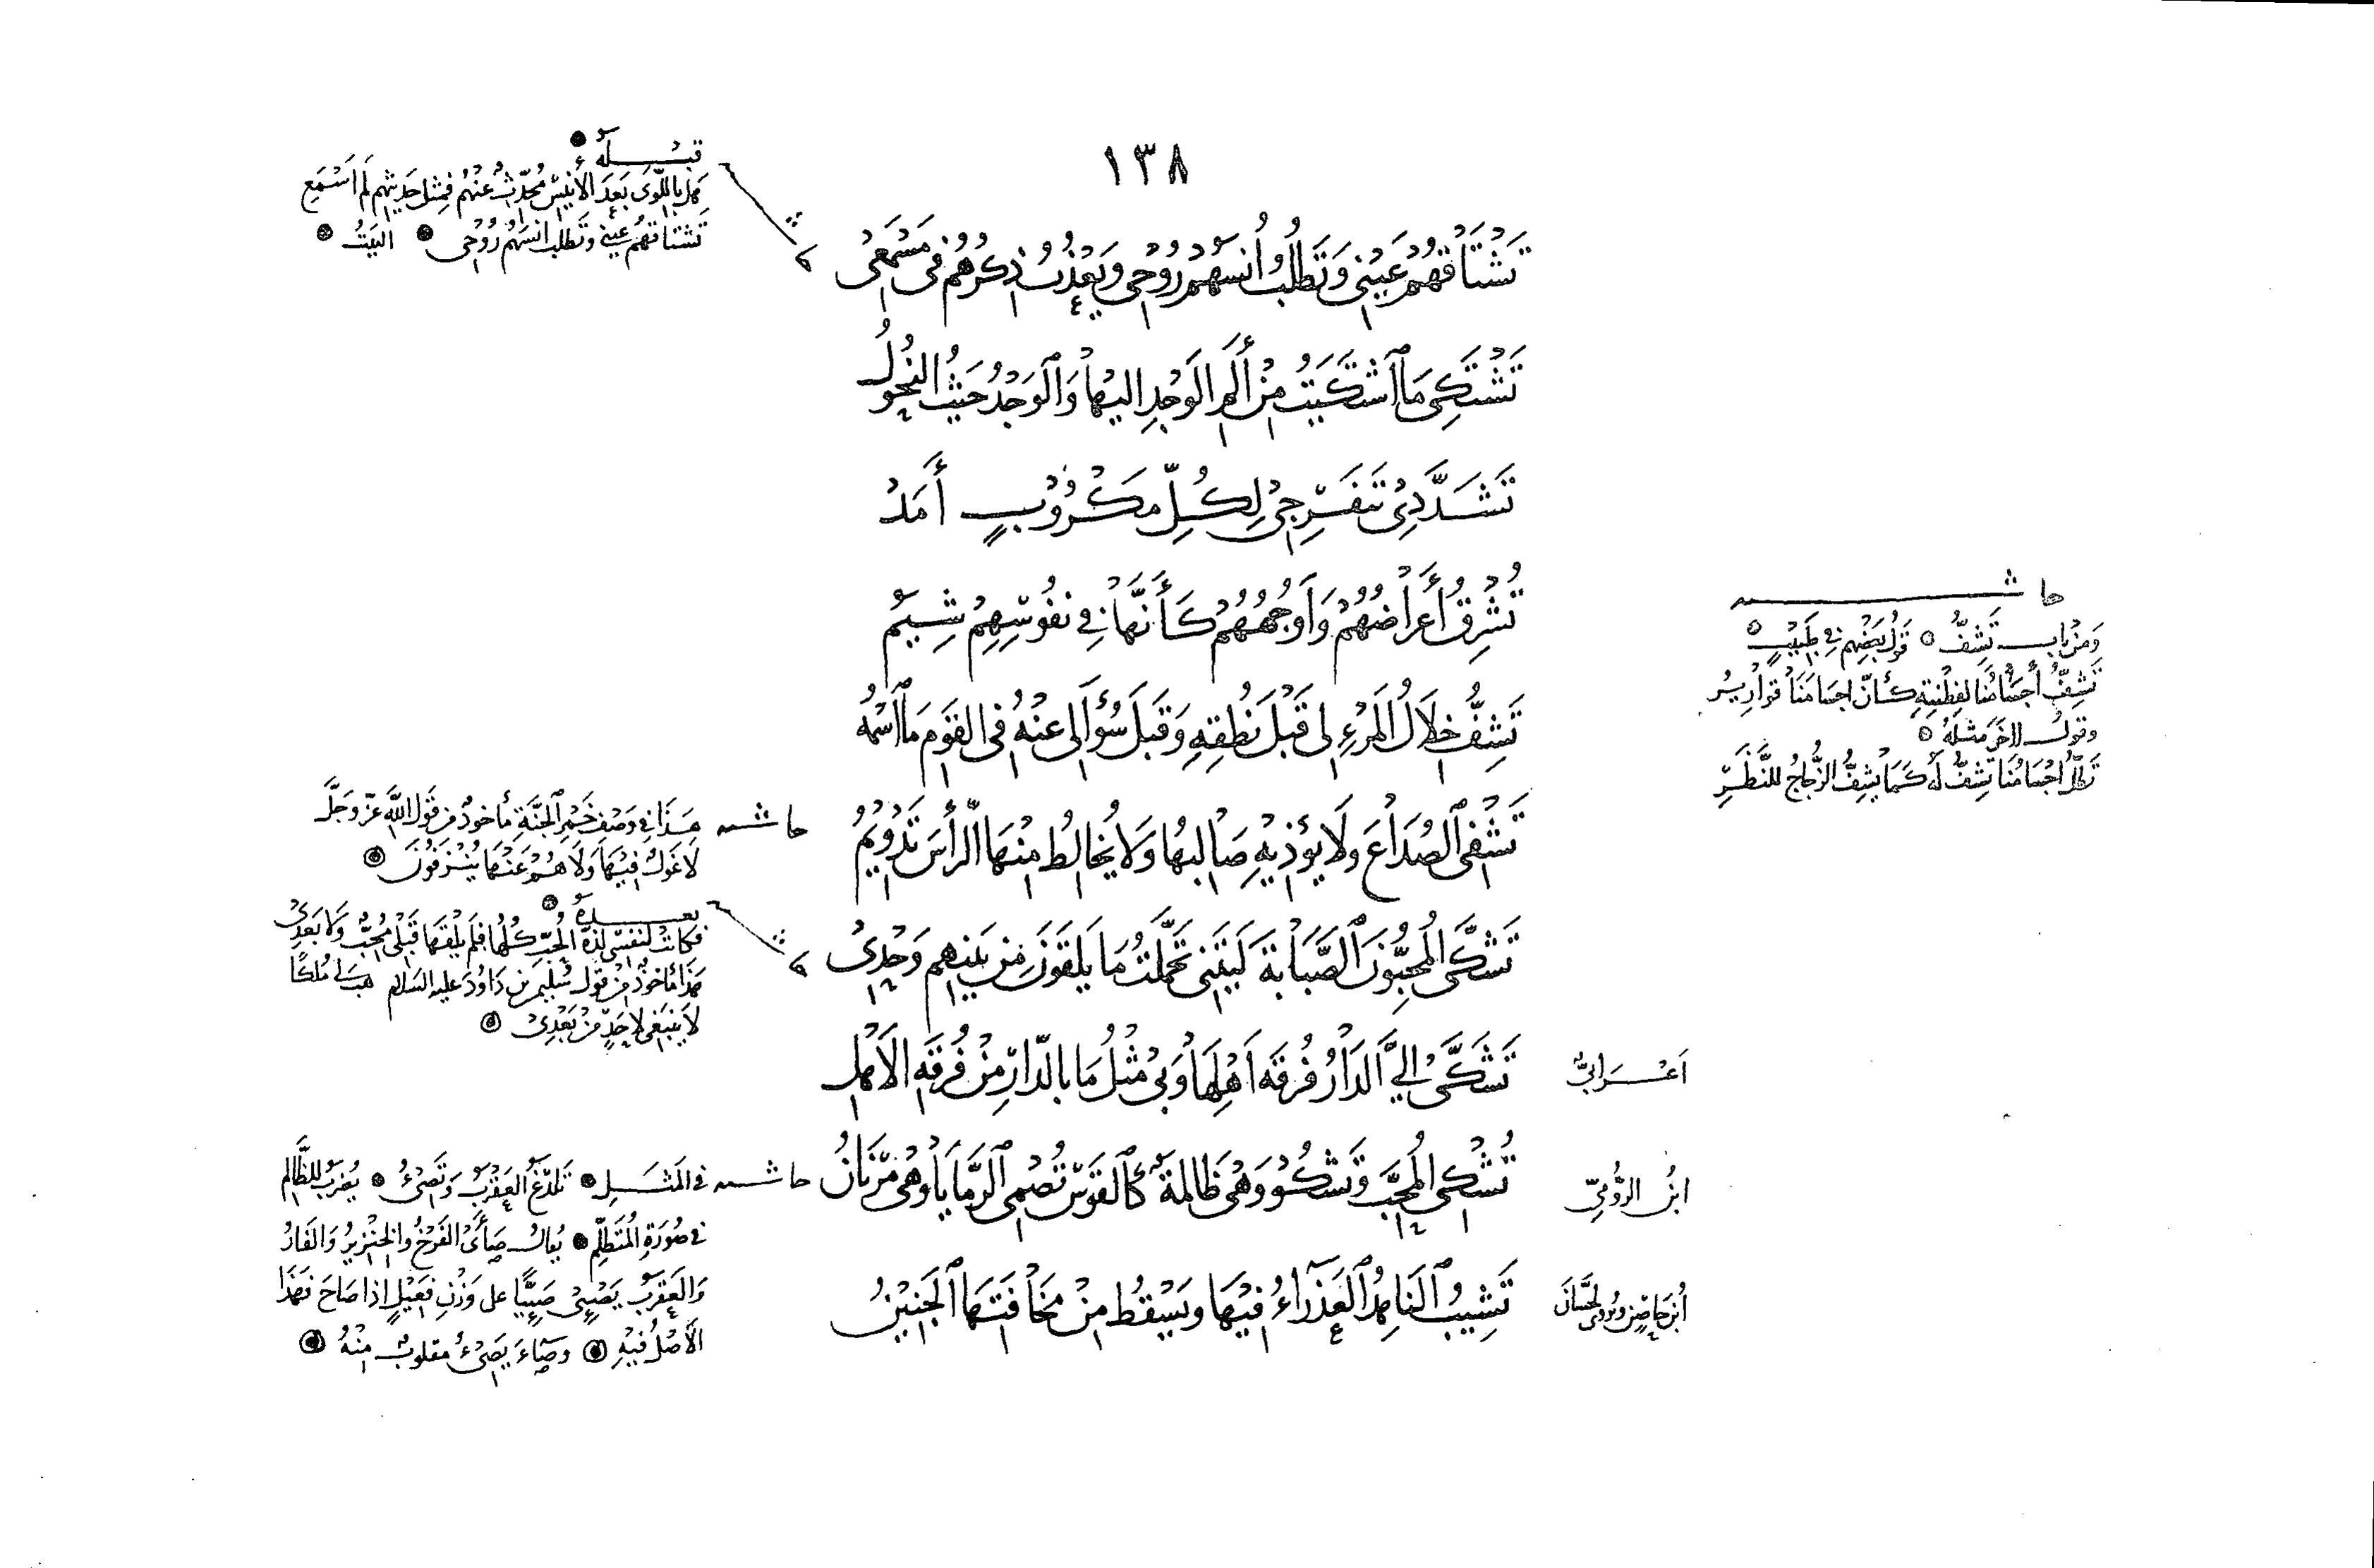 ١٣٨
تَشْتَاقُهُمْ عَيْنِي وَتَطْلُبُ أُنْسَهُمْ رُوْحِي وَيَعْذُبُ ذِكْرُهُمْ فِي مَسْمَعِي
قبْلهُ
هَل بِاللِّوَى بَعدَ الأَنيسِ مُحَدِّثٌ عَنْهُم فمِثل حَديثِهِم لَم أَسْمَعِ
تَشتَاقُهُم عَيْني وتَطلب انسَهُم رُوْحِي البَيتُ
تَشْتَكِي مَا اشْتَكَيْتُ مِنْ أَلَمِ الوَجْدِ اليْهَا وَالوَجْدُ حَيْثُ النُحوْلُ
تَشَدَّدِيْ تَنْفَرِجِيْ لِكُلِّ مَكْرُوْبٍ أَمَدْ
تُشْرِقُ أَعْرَاضُهُمْ وَأَوْجُهُهُمْ كَأَنَّهَا فِي نفُوْسِهِمْ شِيَمُ
تَشِفُّ خِلَالُ المَرْءِ لِي قَبْلَ نُطْقِهِ وَقَبْلَ سُؤَالِي عَنْهُ فِي القَوْمِ مَا اسْمُهُ
حاشـــيه
وَمنْ بابِ تَشِفُّ قَوْلُ بَعْضِهِم فِي طَبيْبٍ
تَشِفُّ أَجْسَامُنَا لفِطْنِتِهِ كَأَنّ اجسَامَنَا قوَاريْرُ
وقولُ الآخَر مثلهُ
تَظَلُّ اجْسَامُنَا تَشِفُّ لَهُ كَمَا يشِفُّ الزُّجَاجُ للنَّظَرِ
تَشْفِي الصُدَاعَ ولَا يؤذِيْهِ صَالبهَا وَلَا يُخَالِطُ مِنْهَا الرأْسَ تَدْوِيْمُ
حاشيه هَذَا فِي وَصْف خَمْرِ الجَنَّةِ مأخوذٌ من قَولِ اللَّهِ عَزّ وَجَلَّ
لَا غَوْلٌ فِيْهَا وَلَا هُمْ عَنْهَا يُنْزَفُوْنَ
تَشَكَّى المُحِبُّونَ الصَّبَابَةَ لَيتَنِي تَحَمَّلْتُ مَا يَلقَوْنَ مِنْ بَيْنِهِمْ وَحْدِيْ
بعدهُ
فكَانت لنفسِي لذّةُ الحُبّ كُلّهَا فلم يَلْقَهَا قَبْلِي مُحِبّ وَلَا بَعْدِيْ
هذَا مَأخُوذٌ منْ قول سُلَيمَن بن دَاوُدَ عَليه السَلام هَب لي مُلكًا
لَا يَنبَغي لِاحَدٍ مِنْ بَعْدِيْ
اَعْـرَابيٌّ
تَشَكَّى إلَيَّ الدَارُ فُرقَةَ اَهْلِهَا وَبِيْ مثْلُ مَا بِالدّارِ مِنْ فُرقَةِ الأَهْلِ
ابنُ الرُّوْمِيّ
تُشْكِي المُحِبَّ وَتَشْكُوْ وَهْيَ ظَالِمةٌ كَالقَوْسِ تُصْمِي الرَّمَايَا وَهْيَ مِرْنَانُ
حاشيه في المَثَـلِ تَلدَغُ العَقْرَبُ وَتَصِئُ يُضرَبُ للظَّالِم
في صُوْرَةِ المُتَظَلِّمِ يُقالُ صَأَى الفَرْخُ والخِنْزيرُ وَالفَارُ
وَالعَقرَبُ يَصْئِيْ صَئِيًّا على وَزْنِ فَعِيْلٍ إِذا صَاحَ فَهَذَا
الأَصْلُ فيْهِ وصَاءَ يَصِئُ مقلوبٌ مِنْهُ
تَشِيْبُ النَاهِدُ العَذْرَاءُ فِيْهَا وَيَسْقُطُ مِنْ مَخَافَتِهَا الجَنِيْنُ